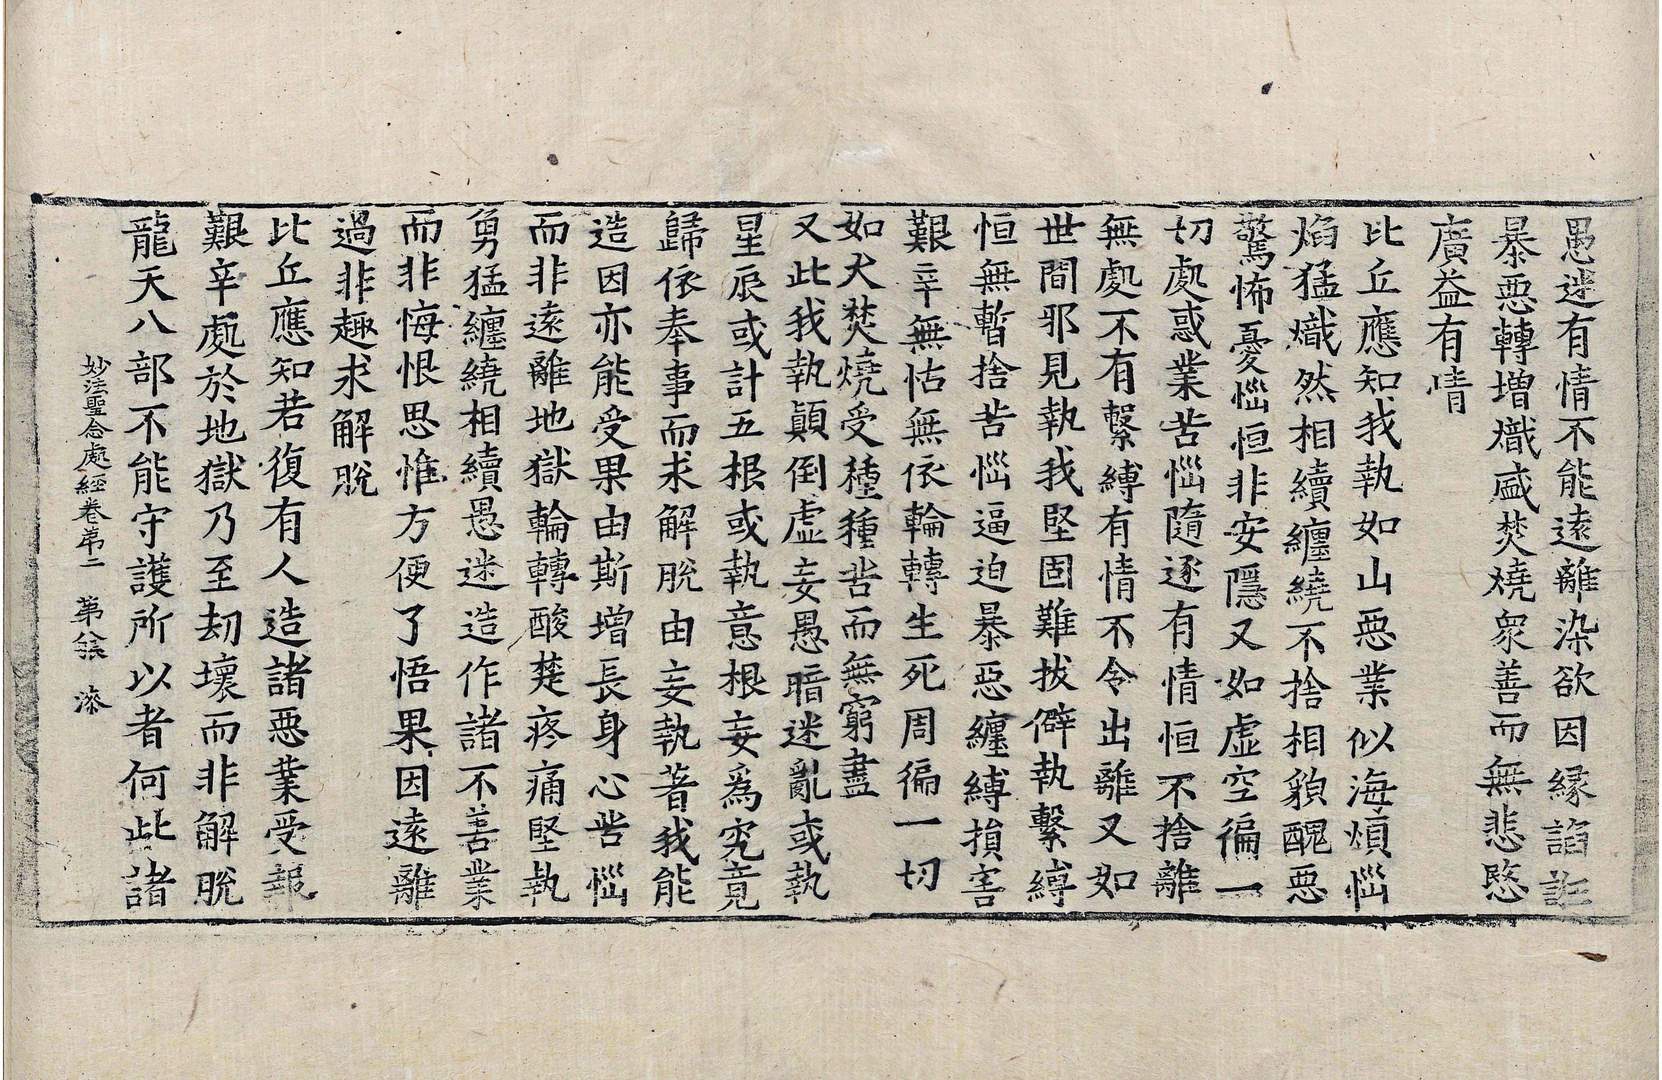 愚迷有情不能遠離染欲因緣諂誑
暴惡轉增熾盛焚燒衆善而無悲愍
廣益有情
比丘應知我執如山惡業似海煩惱
焰猛熾然相續纏繞不捨相貌醜惡
驚怖憂惱恒非安隱又如虛空徧一
切處惑業苦惱隨逐有情恒不捨離
無處不有繫縛有情不令出離又如
世間邪見執我堅固難拔僻執繫縛
恒無暫捨苦惱逼迫暴惡纏縛損害
艱辛無怙無依輪轉生死周徧一切
如火焚燒受種種苦而無窮盡
又此我執顚倒虛妄愚暗迷亂或執
星辰或計五根或執意根妄爲究竟
歸依奉事而求解脫由妄執著我能
造因亦能受果由斯增長身心苦惱
而非遠離地獄輪轉酸楚疼痛堅執
勇猛纏繞相續愚迷造作諸不善業
而非悔恨思惟方便了悟果因遠離
過非趣求解脫
比丘應知若復有人造諸惡業受報
艱辛處於地獄乃至劫壞而非解脫
龍天八部不能守護所以者何此諸
妙法聖念處經卷第二　第八張　漆